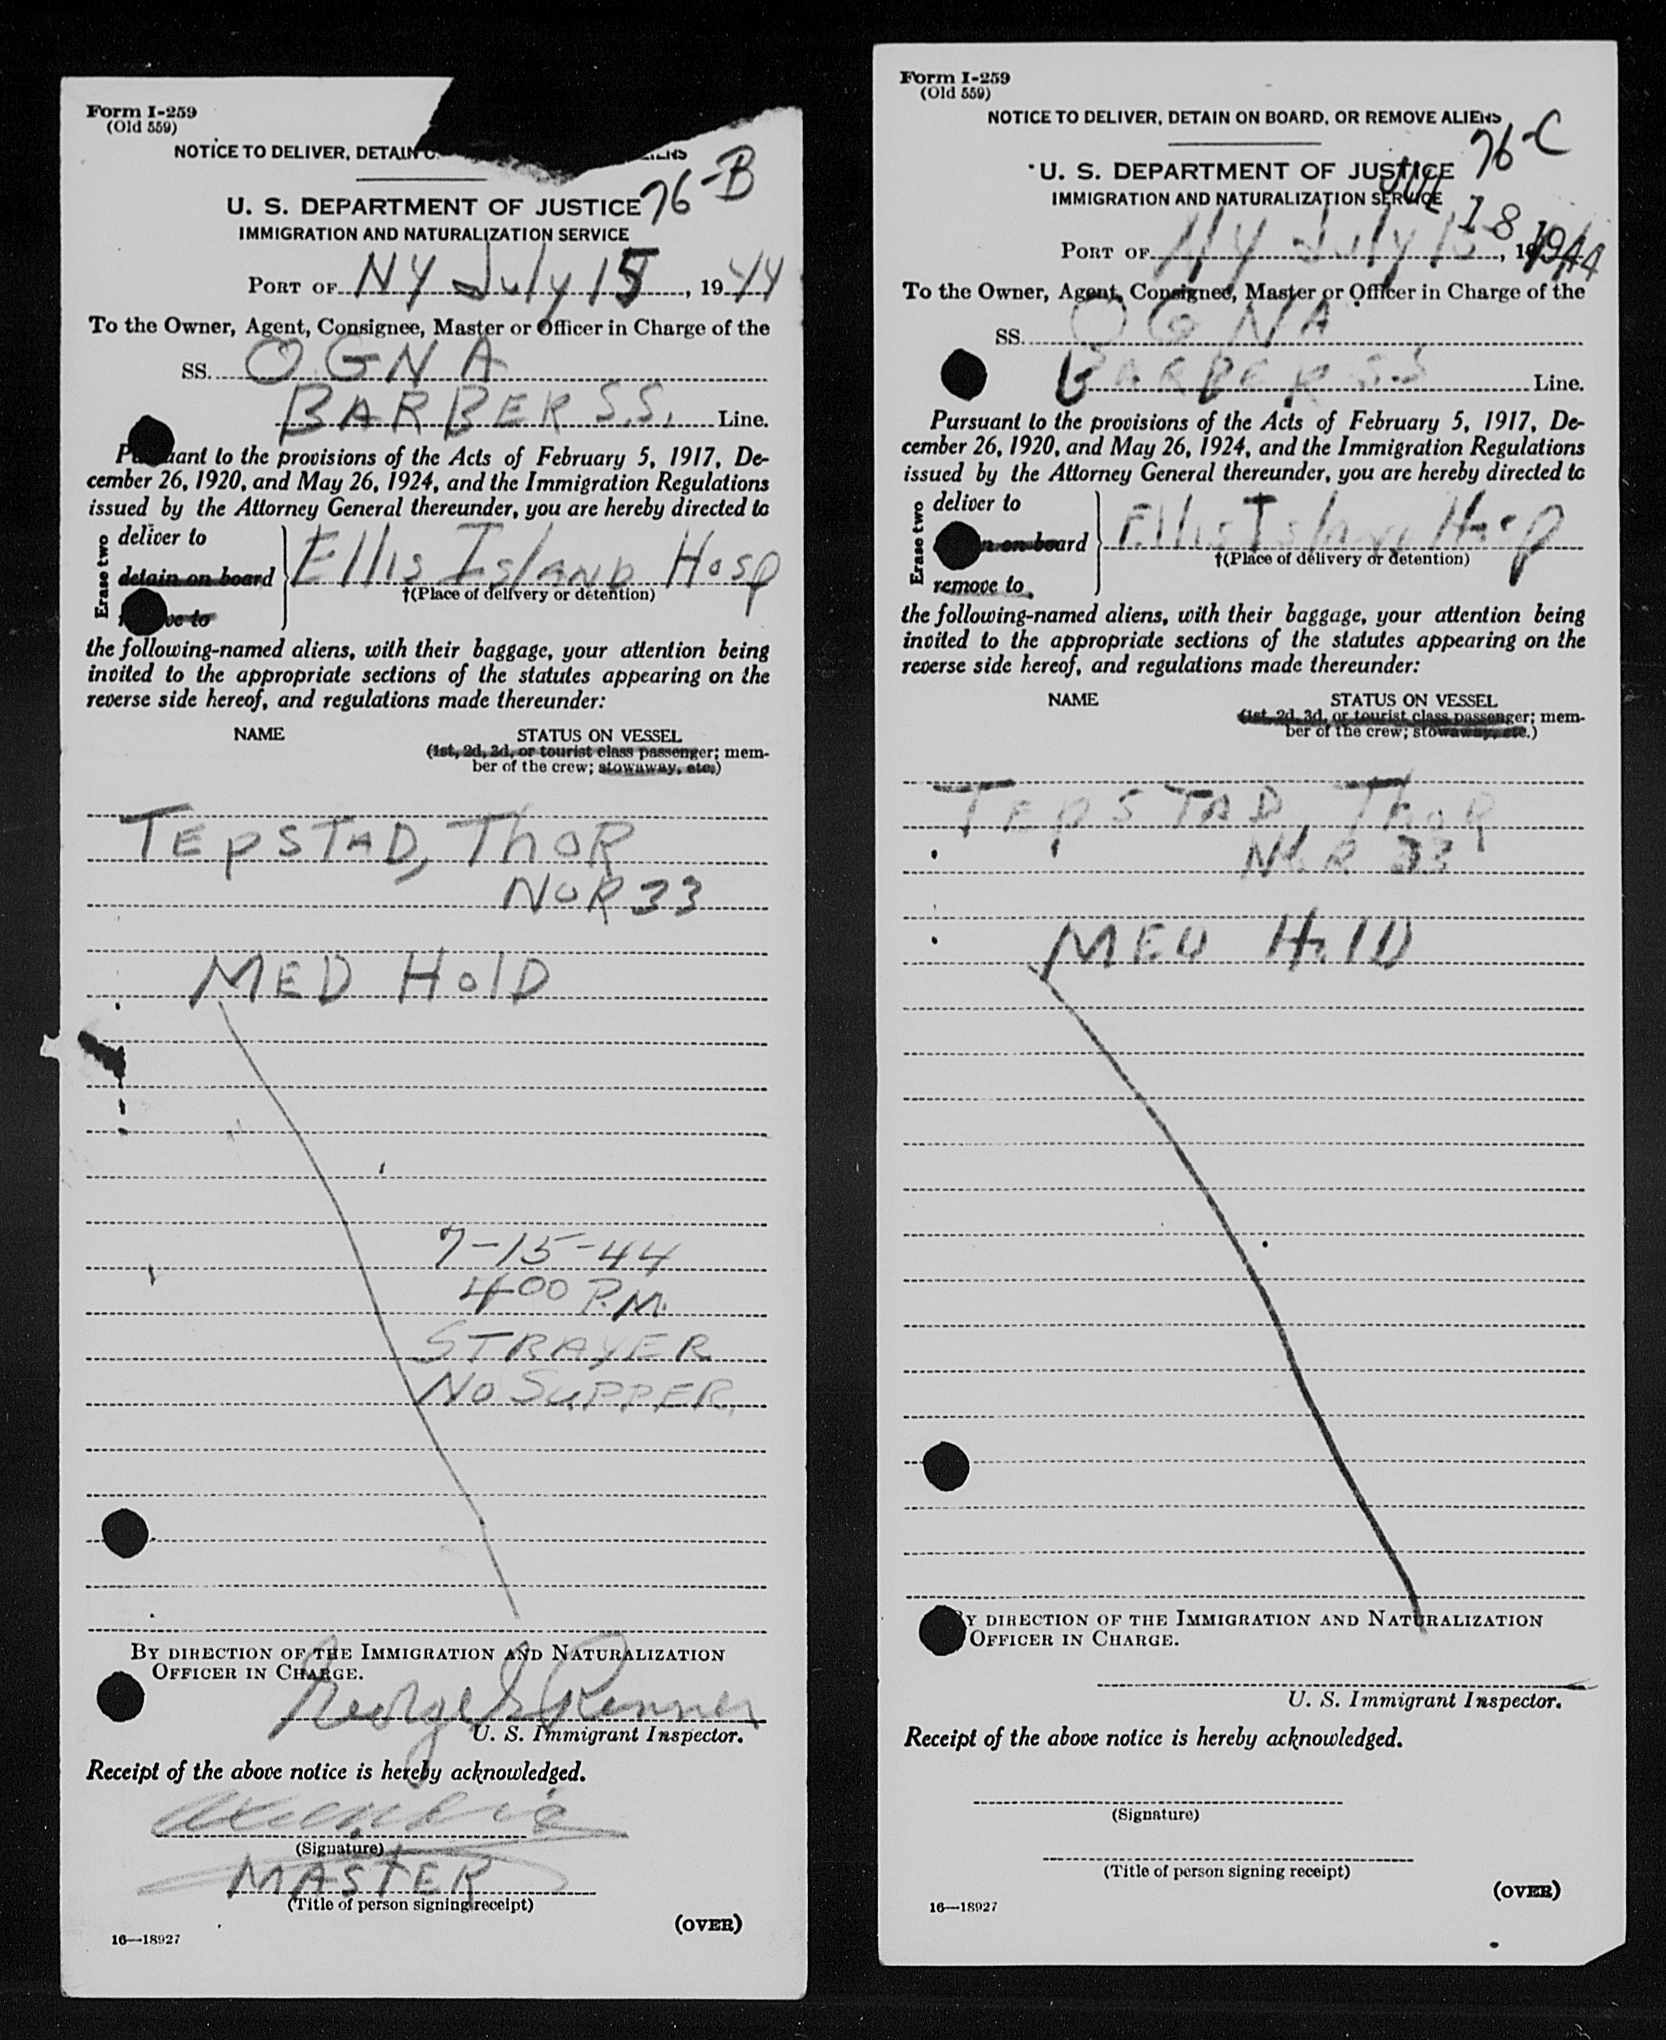 Form I-259
(Old 559)
NOTICE TO DELIVER, DETAIN
76-B
U. S. DEPARTMENT OF JUSTICE
IMMIGRATION AND NATURALIZATION SERVICE
PORT OF NY July 15, 1944
To the Owner, Agent, Consignee, Master or Officer in Charge of the
SS. OGNA
BARBER S.S. Line.
Pursuant to the provisions of the Acts of February 5, 1917, De-
cember 26, 1920, and May 26, 1924, and the Immigration Regulations
issued by the Attorney General thereunder, you are hereby directed to
Erase two
deliver to
detain on board
Ellis Island Hosp
†(Place of delivery or detention)
the following-named aliens, with their baggage, your attention being
invited to the appropriate sections of the statutes appearing on the
reverse side hereof, and regulations made thereunder:
NAME STATUS ON VESSEL
(1st, 2d, 3d, or tourist class passenger; mem-
ber of the crew; stowaway, etc.)
TEpSTAD, ThOR
NOR 33
MED HolD
7-15-44
400 P.M.
STRAYER
NO SUPPER.
BY DIRECTION OF THE IMMIGRATION AND NATURALIZATION
OFFICER IN CHARGE.
George Renner
U. S. Immigrant Inspector.
Receipt of the above notice is hereby acknowledged.
(Signature)
MASTER
(Title of person signing receipt)
(OVER)
16—18927
Form I-259
(Old 559)
NOTICE TO DELIVER, DETAIN ON BOARD, OR REMOVE ALIENS
76-C
U. S. DEPARTMENT OF JUSTICE
IMMIGRATION AND NATURALIZATION SERVICE
JUL 18 1944
PORT OF NY July 15, 19
To the Owner, Agent, Consignee, Master or Officer in Charge of the
SS. OGNA
BARBER S.S Line.
Pursuant to the provisions of the Acts of February 5, 1917, De-
cember 26, 1920, and May 26, 1924, and the Immigration Regulations
issued by the Attorney General thereunder, you are hereby directed to
Erase two
deliver to
on board
remove to
Ellis Island Hosp
†(Place of delivery or detention)
the following-named aliens, with their baggage, your attention being
invited to the appropriate sections of the statutes appearing on the
reverse side hereof, and regulations made thereunder:
NAME STATUS ON VESSEL
(1st, 2d, 3d, or tourist class passenger; mem-
ber of the crew; stowaway, etc.)
TEpSTAD, ThOR
NOR 33
MED HolD
BY DIRECTION OF THE IMMIGRATION AND NATURALIZATION
OFFICER IN CHARGE.
U. S. Immigrant Inspector.
Receipt of the above notice is hereby acknowledged.
(Signature)
(Title of person signing receipt)
(OVER)
16—18927